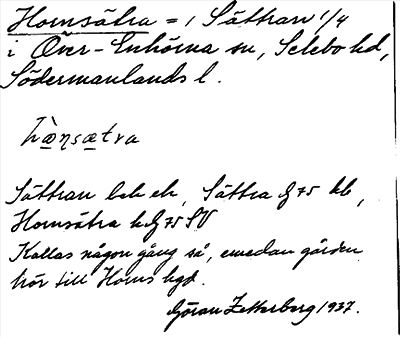 Hornsätra = 1 Sättran 1/4
i Över-Enhörna sn, Selebo hd,
Södermanlands l.
Sättran bek ek, Sättra G 75 kb,
Hornsätra h G 75 SV
Kallas någon gång så, emedan gården
hör till Horns hgd.
Göran Zetterberg 1937.